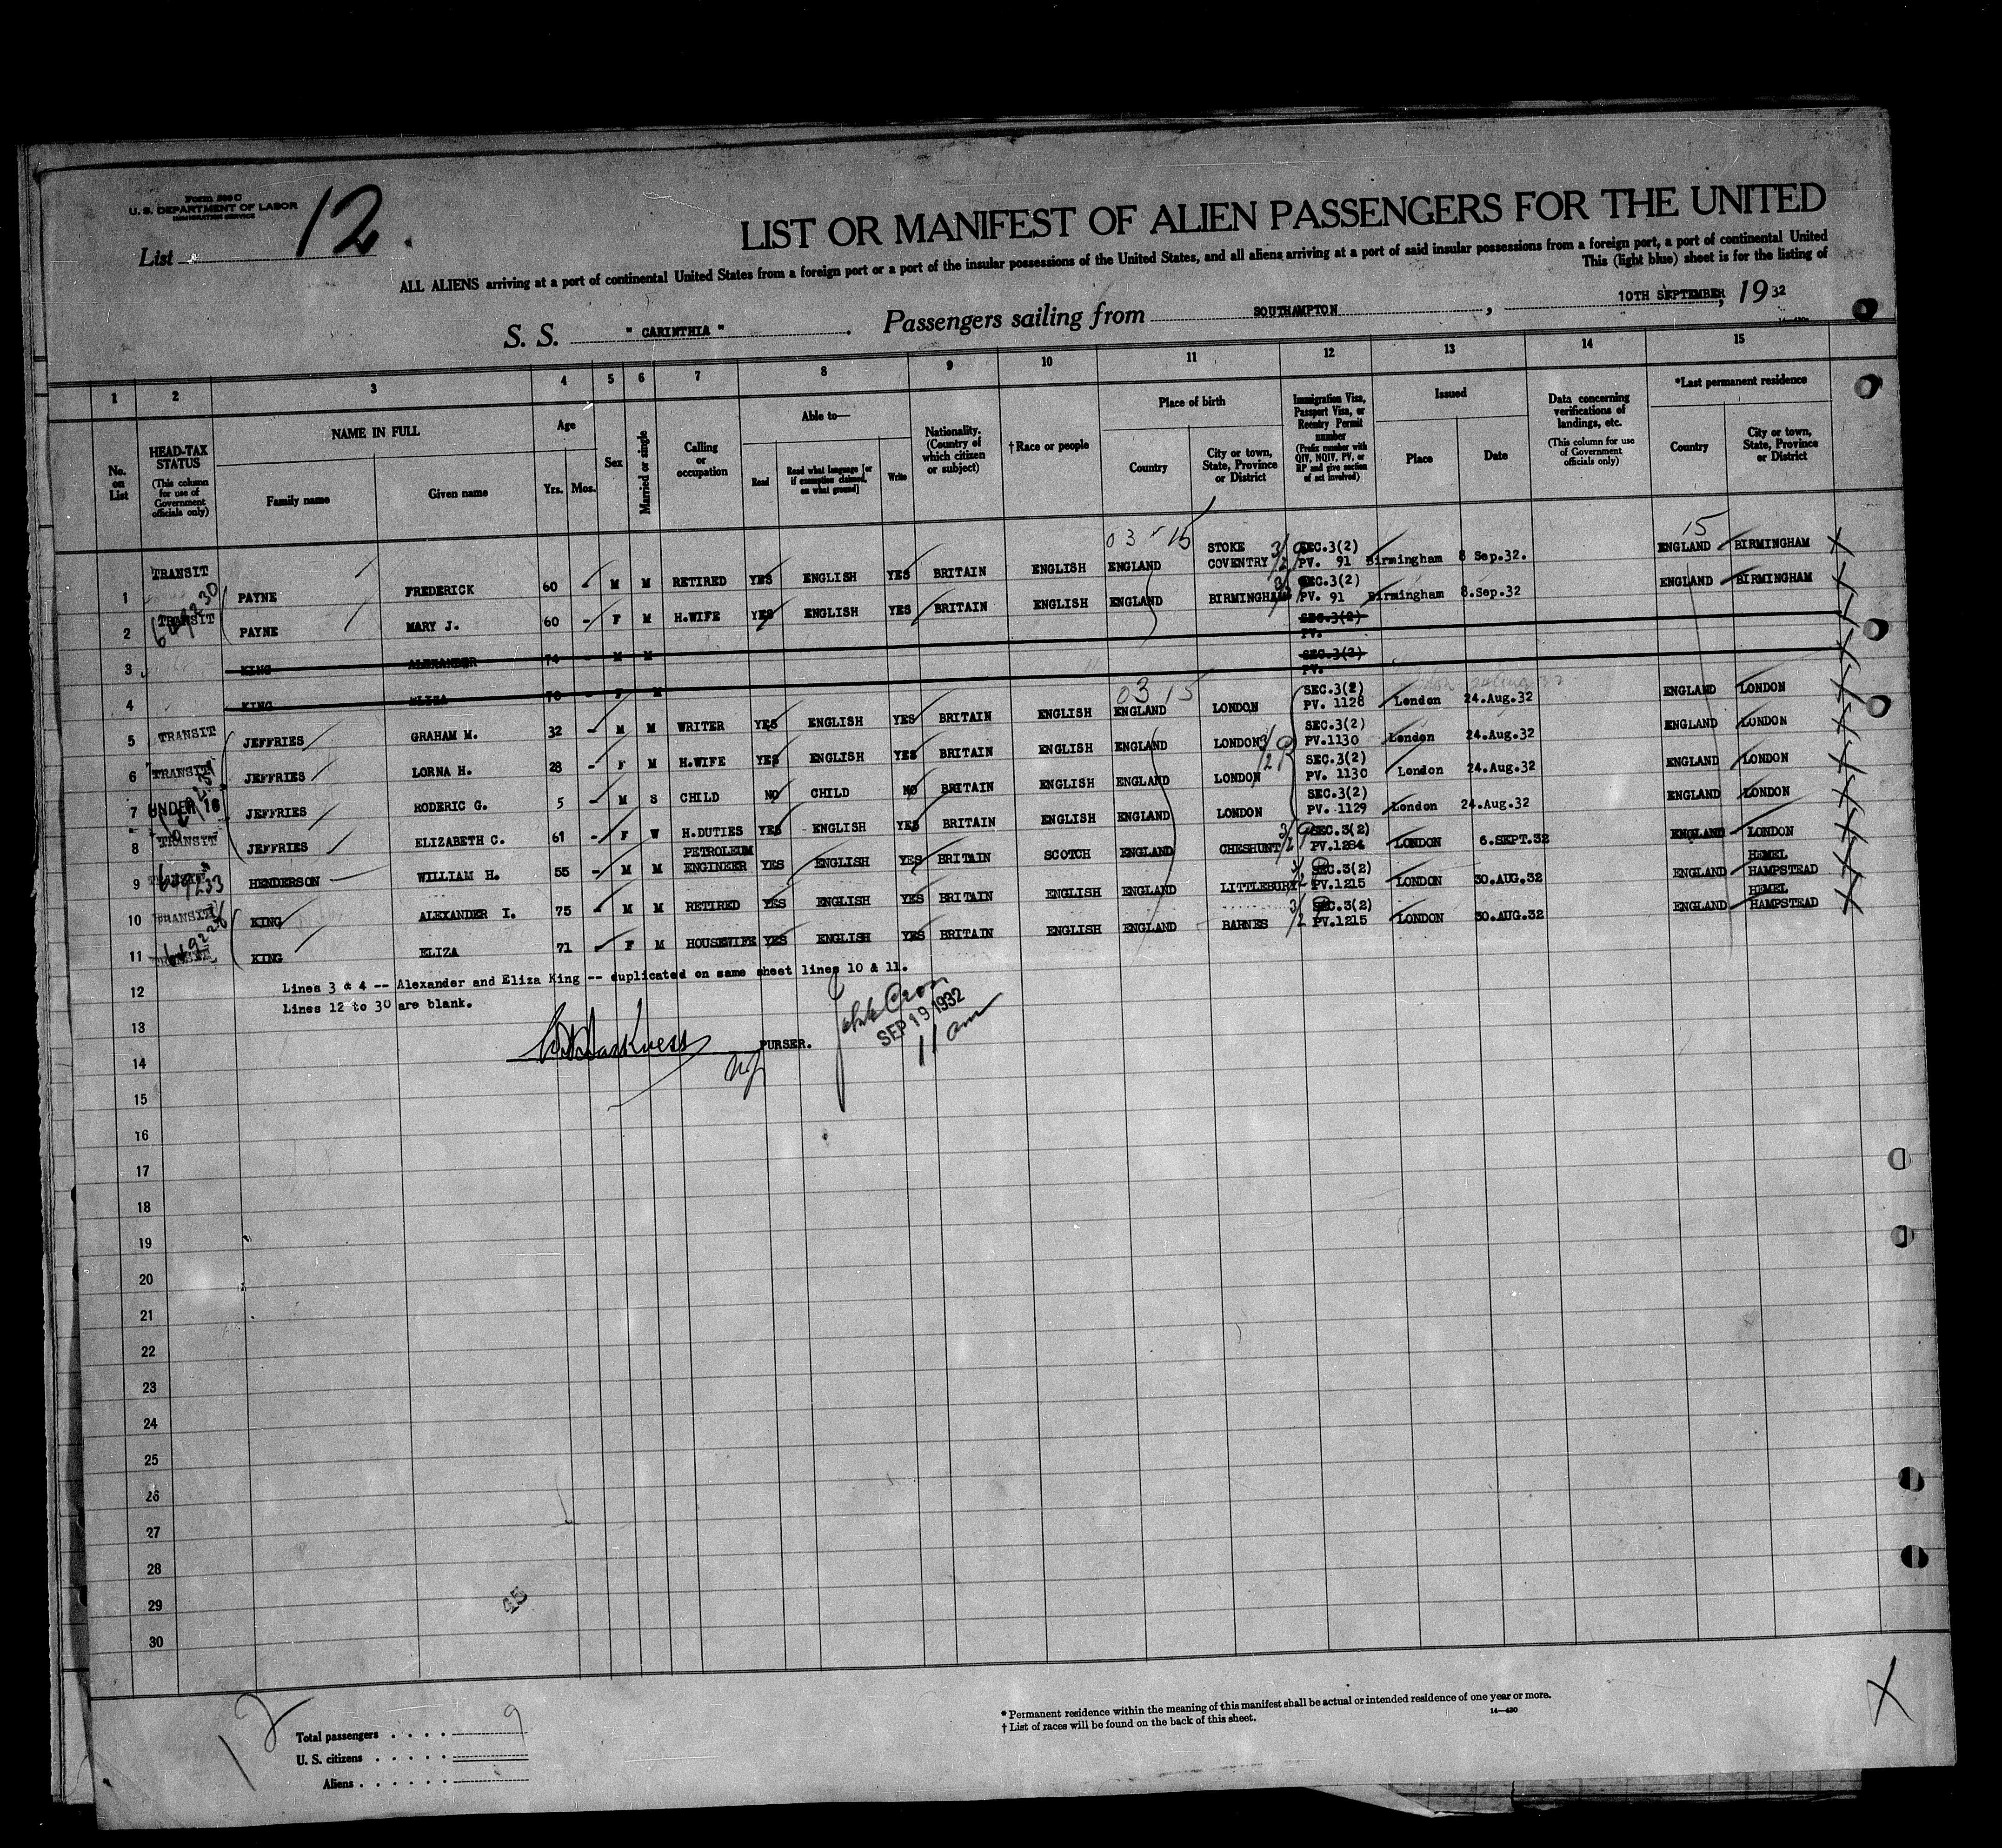 Form 500 C
U. S. DEPARTMENT OF LABOR
IMMIGRATION SERVICE
List 12.
LIST OR MANIFEST OF ALIEN PASSENGERS FOR THE UNITED
ALL ALIENS arriving at a port of continental United States from a foreign port or a port of the insular possessions of the United States, and all aliens arriving at a port of said insular possessions from a foreign port, a port of continental United
This (light blue) sheet is for the listing of
S. S. " CARINTHIA ". Passengers sailing from SOUTHAMPTON, 10TH SEPTEMBER, 1932
1 2 3 4 5 6 7 8 9 10 11 12 13 14 15
No. on List
HEAD-TAX STATUS (This column for use of Government officials only)
NAME IN FULL
Family name Given name
Age
Yrs. Mos.
Sex
Married or single
Calling or occupation
Able to—
Read Read what language [or if exemption claimed, on what ground] Write
Nationality. (Country of which citizen or subject)
†Race or people
Place of birth
Country City or town, State, Province or District
Immigration Visa, Passport Visa, or Reentry Permit number (Prefix number with QIV, NQIV, PV, or RP and give section of act involved)
Issued
Place Date
Data concerning verifications of landings, etc. (This column for use of Government officials only)
*Last permanent residence
Country City or town, State, Province or District
03 - 15 15
1 TRANSIT PAYNE FREDERICK 60 - M M RETIRED YES ENGLISH YES BRITAIN ENGLISH ENGLAND STOKE COVENTRY SEC.3(2) PV. 91 Birmingham 8 Sep.32. ENGLAND BIRMINGHAM X
2 TRANSIT PAYNE MARY J. 60 - F M H.WIFE YES ENGLISH YES BRITAIN ENGLISH ENGLAND BIRMINGHAM SEC.3(2) PV. 91 Birmingham 8.Sep.32 ENGLAND BIRMINGHAM X
3 KING ALEXANDER 74 - M M SEC.3(2) PV.
4 KING ELIZA 70 - F M SEC.3(2) PV.
03 15
5 TRANSIT JEFFRIES GRAHAM M. 32 - M M WRITER YES ENGLISH YES BRITAIN ENGLISH ENGLAND LONDON SEC.3(2) PV. 1128 London 24.Aug.32 ENGLAND LONDON X
6 TRANSIT JEFFRIES LORNA H. 28 - F M H.WIFE YES ENGLISH YES BRITAIN ENGLISH ENGLAND LONDON SEC.3(2) PV.1130 London 24.Aug.32 ENGLAND LONDON X
7 UNDER 16 JEFFRIES RODERIC G. 5 - M S CHILD NO CHILD NO BRITAIN ENGLISH ENGLAND LONDON SEC.3(2) PV. 1130 London 24.Aug.32 ENGLAND LONDON X
8 TRANSIT JEFFRIES ELIZABETH C. 61 - F W H.DUTIES YES ENGLISH YES BRITAIN ENGLISH ENGLAND LONDON SEC.3(2) PV. 1129 London 24.Aug.32 ENGLAND LONDON X
9 TRANSIT HENDERSON WILLIAM H. 55 - M M PETROLEUM ENGINEER YES ENGLISH YES BRITAIN SCOTCH ENGLAND CHESHUNT SEC.3(2) PV.1284 LONDON 6.SEPT.32 ENGLAND LONDON X
10 TRANSIT KING ALEXANDER I. 75 - M M RETIRED YES ENGLISH YES BRITAIN ENGLISH ENGLAND LITTLEBURY SEC.3(2) PV.1215 LONDON 30.AUG.32 ENGLAND HEMEL HAMPSTEAD X
11 TRANSIT KING ELIZA 71 - F M HOUSEWIFE YES ENGLISH YES BRITAIN ENGLISH ENGLAND BARNES SEC.3(2) PV.1215 LONDON 30.AUG.32 ENGLAND HEMEL HAMPSTEAD X
Lines 3 & 4 -- Alexander and Eliza King -- duplicated on same sheet lines 10 & 11.
12
Lines 12 to 30 are blank.
13
PURSER.
SEP 19 1932
11 am
14
15
16
17
18
19
20
21
22
23
24
25
26
27
28
29
45
30
12
Total passengers . . . . 9
U. S. citizens . . . . .
Aliens . . . . . .
* Permanent residence within the meaning of this manifest shall be actual or intended residence of one year or more.
† List of races will be found on the back of this sheet.
14—430
X